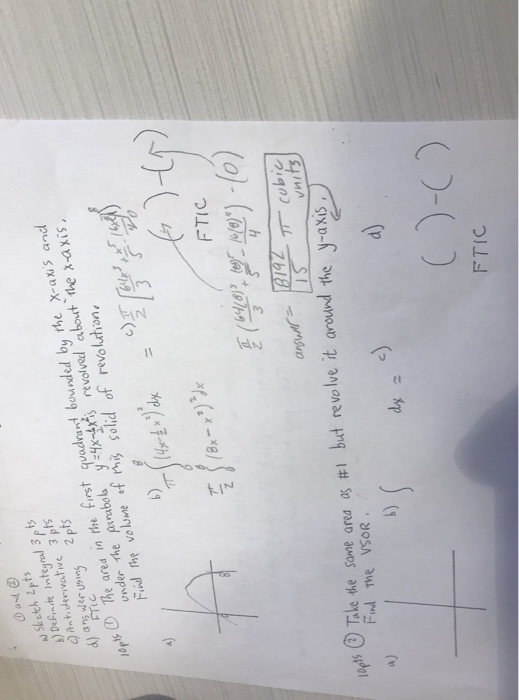 ① and ②
a) Sketch 2 pts
b) Definite Integral 3 pts
c) Antiderivative 3 pts
d) answer using FTIC 2 pts
10pts ① The area in the first quadrant bounded by the x-axis and
under the parabola y=4x-½x² is revolved about the x-axis.
Find the volume of this solid of revolution.
a)
b) π∫₀⁸ (4x-½x²)² dx = c) π/2 [64x³/3 + x⁵/5 -
π/2 ∫₀⁸ (8x-x²)² dx
( ) - ( )
FTIC
π/2 (64(8)³/3 + (8)⁵/5 - 16(8)⁴/4) - (0)
answer = 8192/15 π cubic units
10pts ② Take the same area as #1 but revolve it around the y-axis.
Find the VSOR.
a) b) ∫ dx = c) d)
( ) - ( )
FTIC